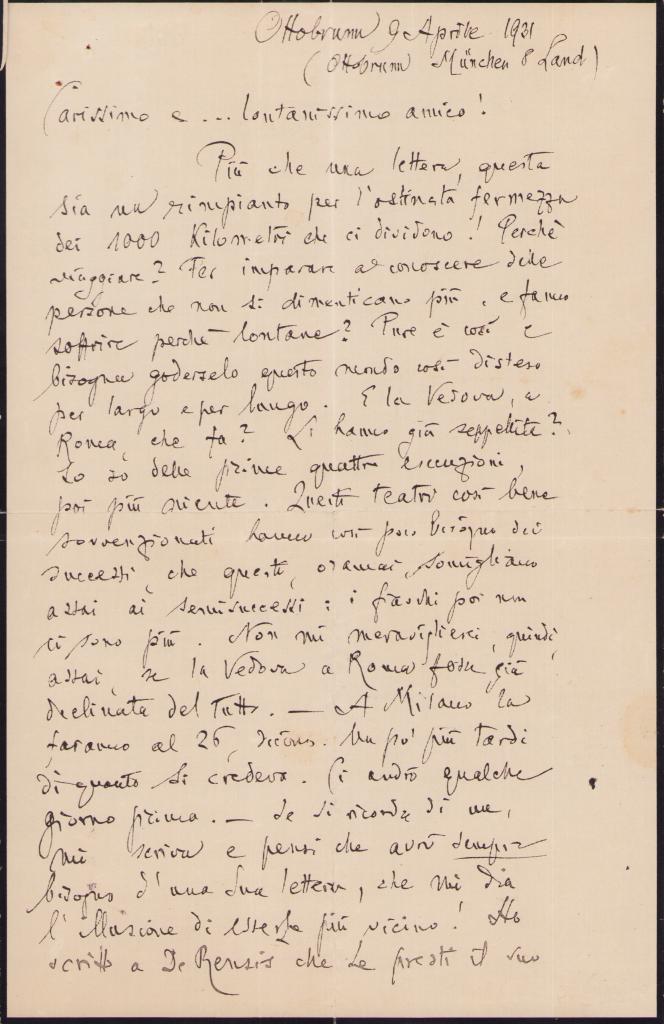 Ottobrunn 9 Aprile 1931
(Ottobrunn München 8 Land)
Carissimo e ... lontanissimo amico!
Più che una lettera, questa
sia un rimpianto per l'ostinata fermezza
dei 1000 Kilometri che ci dividono! Perchè
viaggiare? Per imparare a conoscere delle
persone che non si dimenticano più, e fanno
soffrire perchè lontane? Pure è così e
bisogna goderselo questo mondo così disteso
per largo e per lungo. E la Vedova, a
Roma, che fa? L'hanno già seppellita?
Io so delle prime quattro esecuzioni,
poi più niente. Questi teatri così bene
sovvenzionati hanno così poco bisogno dei
successi, che questi, oramai, somigliano
assai ai semisuccessi: i fiaschi poi non
ci sono più. Non mi meraviglierei, quindi,
assai, se la Vedova a Roma fosse già
declinata del tutto. — A Milano la
faranno al 26, dicono. Un po' più tardi
di quanto si credeva. Ci andrò qualche
giorno prima. — Se si ricorda di me,
mi scriva e pensi che avrò sempre
bisogno d'una Sua lettera, che mi dia
l'illusione di esserLe più vicino! Ho
scritto a De Rensis che Le presti il suo